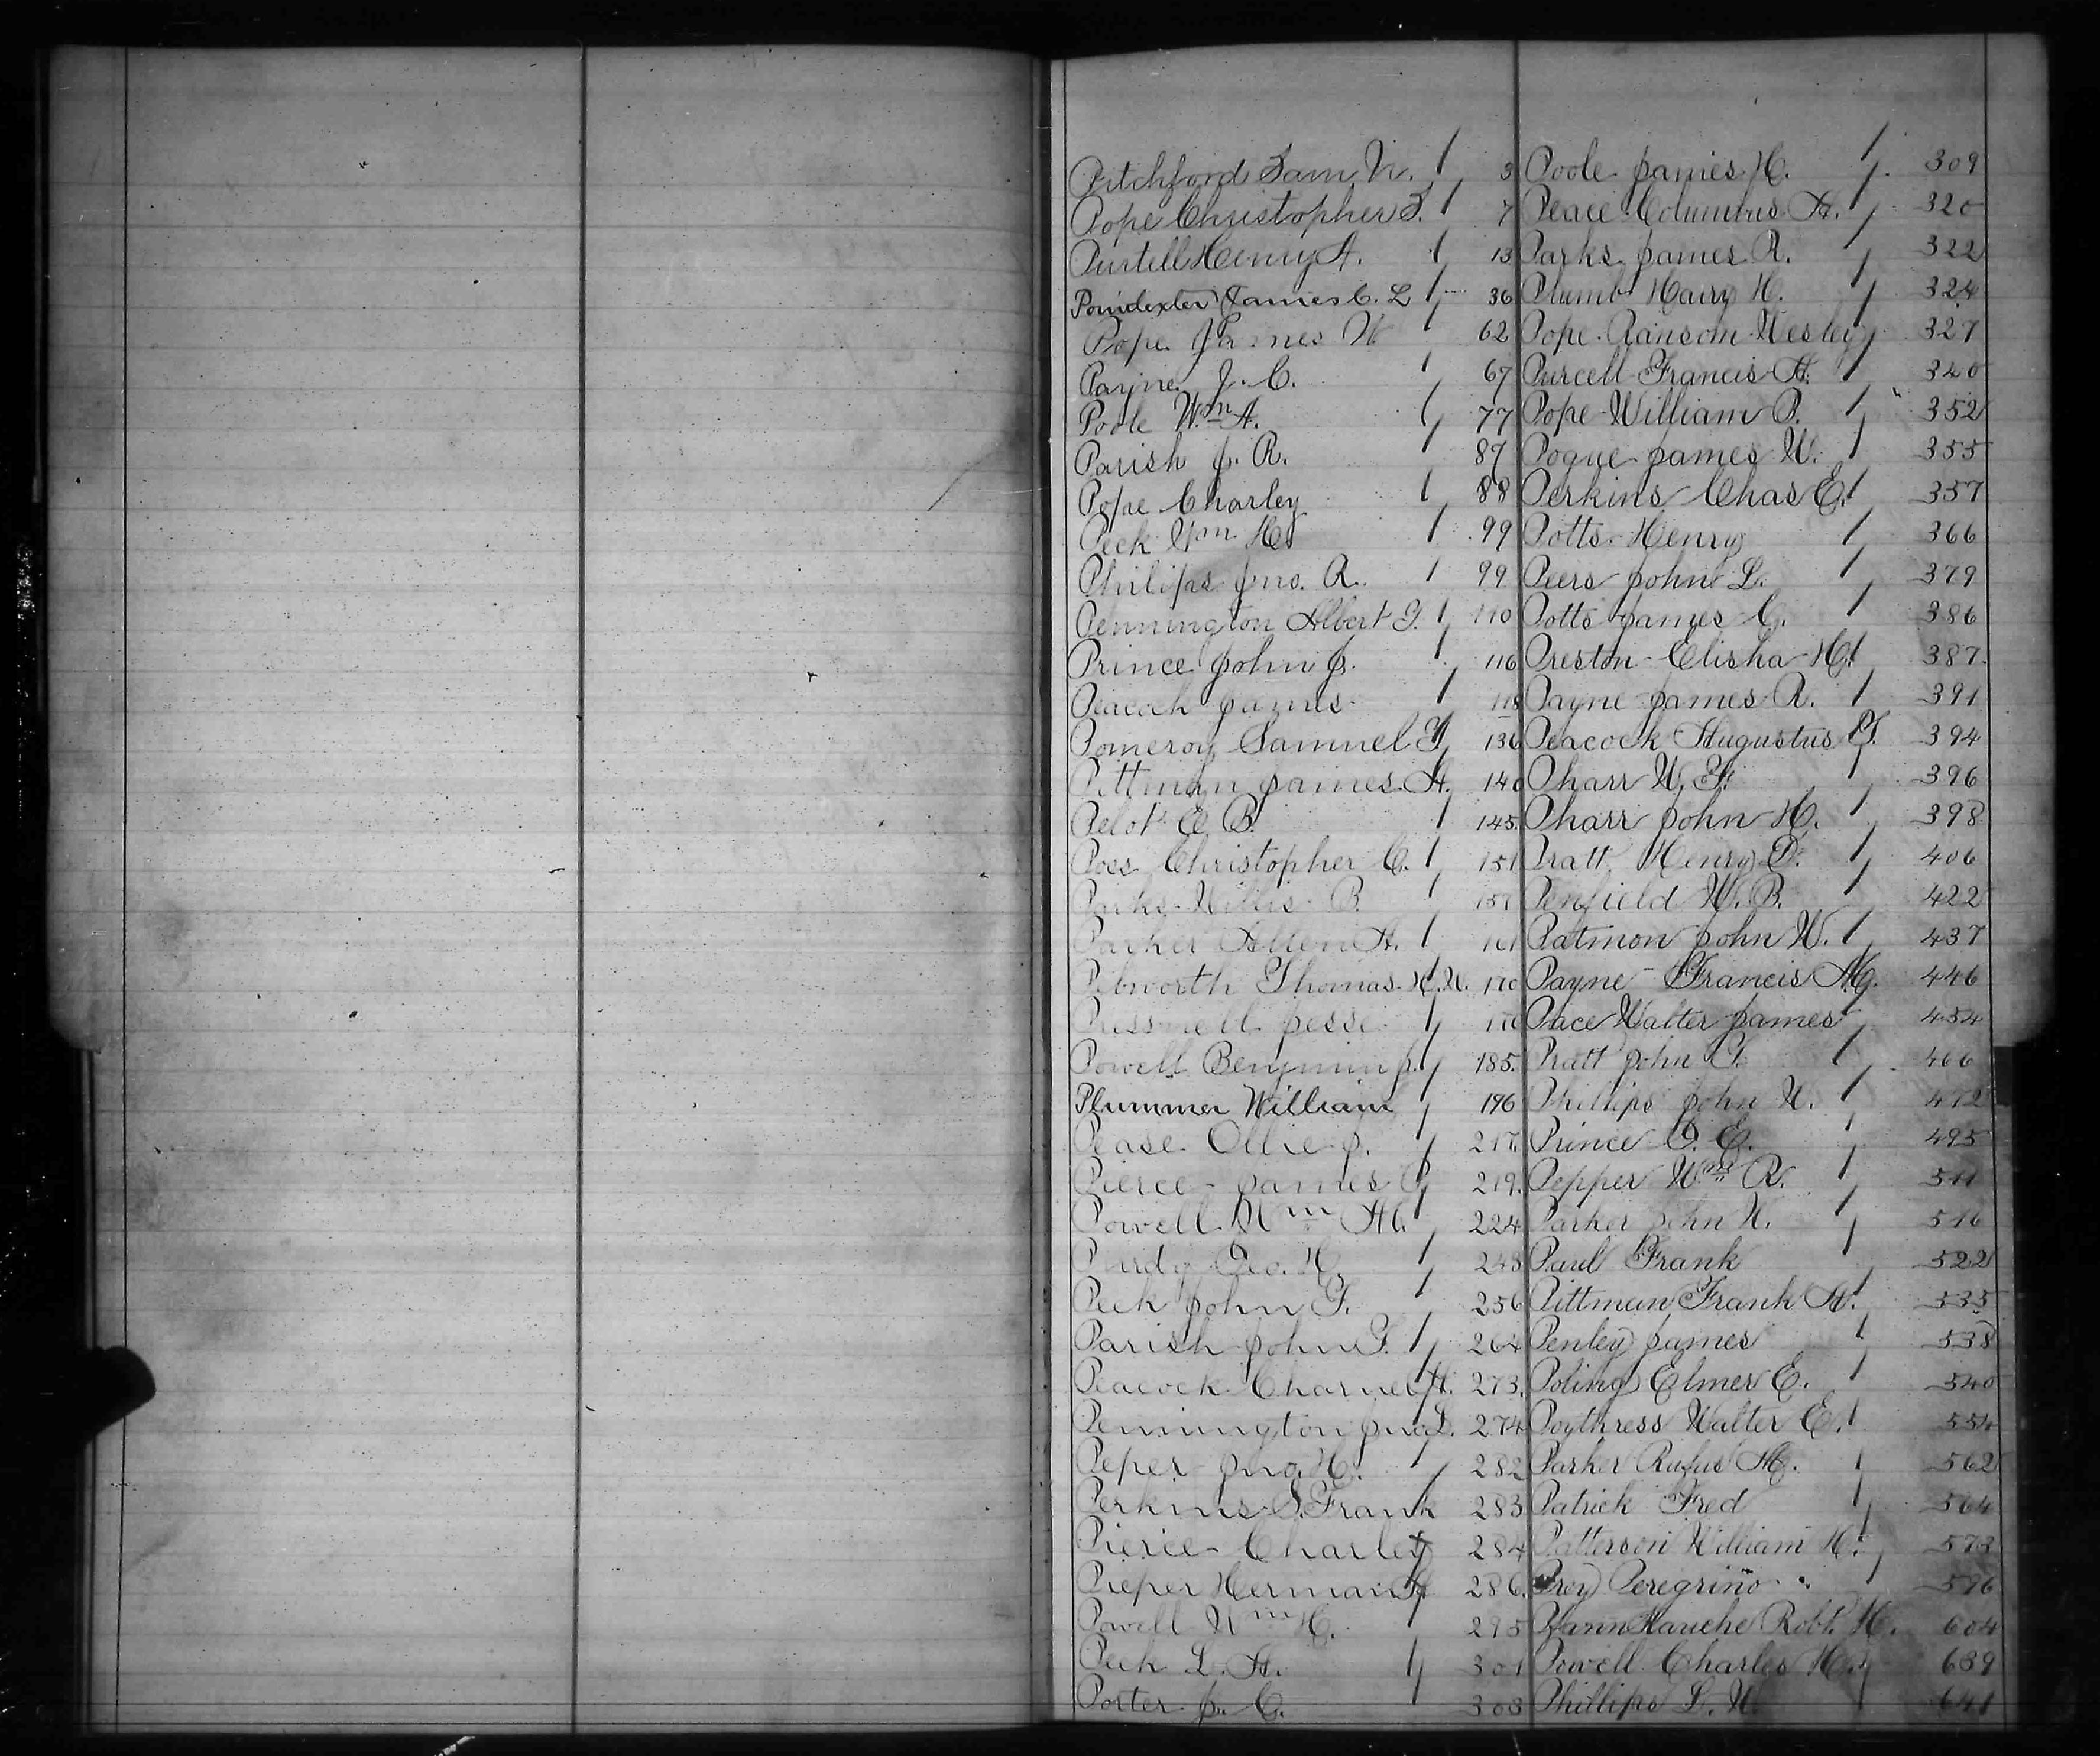 Pitchford Sam W. 3
Pope Christopher T. 7
Purtell Henry A. 13
Poindexter James C. L 36
Pope James W 62
Payne J. C. 67
Poole Wm A. 77
Parish J. R. 87
Pope Charley 88
Peck Wm H. 99
Philips Jno. R. 99
Pennington Albert G. 110
Prince John J. 116
Peacock James 118
Pomeroy Samuel Y 136
Pittman James A. 140
Pelot E B. 145
Poes Christopher C. 151
Parks Willis B. 157
Parker Allen A. 161
Pebworth Thomas 170
Jesse
Powell Benjamin J. 185.
Plummer William 196
Pease Ollie J. 217.
Pierce James 219.
Powell Wm 224
Purdy Geo. H. 248
Peck John F. 256
Parish John T. 264
Peacock A. 273.
Pennington 274
Peper Jno. H. 282
Perkins S. Frank 283
Pierce Charley 284
Pieper Herman 286.
Powell Wm H. 295
Peek L. A. 301
Porter J. C. 303
Poole James H. 309
Peace Columbus A. 320
Parks James R. 322
Plumb Harry H. 324
Pope Ransom Wesley 327
Purcell Francis A. 340
Pope William P. 352
Pogue James W. 355
Perkins Chas E. 357
Potts Henry 366
Peers John L. 379
Potts James C. 386
Preston Elisha H. 387.
Payne James R. 391
Peacock Augustus 394
Pharr W. F. 396
Pharr John H. 398
Pratt Henry D. 406
Penfield W. B. 422
Patmon John W. 437
Payne Francis M. 446
Pace Walter James 454
Pratt John T. 466
Phillips John W. 472
Prince O. E. 495
Pepper Wm R. 511
Parker John W. 516
Paul Frank 522
Pittman Frank A. 535
Penley James 538
Poling Elmer E. 540
Poythress Walter E. 554
Parker Rufus 562
Patrick Fred 564
Patterson William H. 573
Prey Peregrino 596
Robt. H. 604
Powell Charles H. 639
Phillips L. W. 641